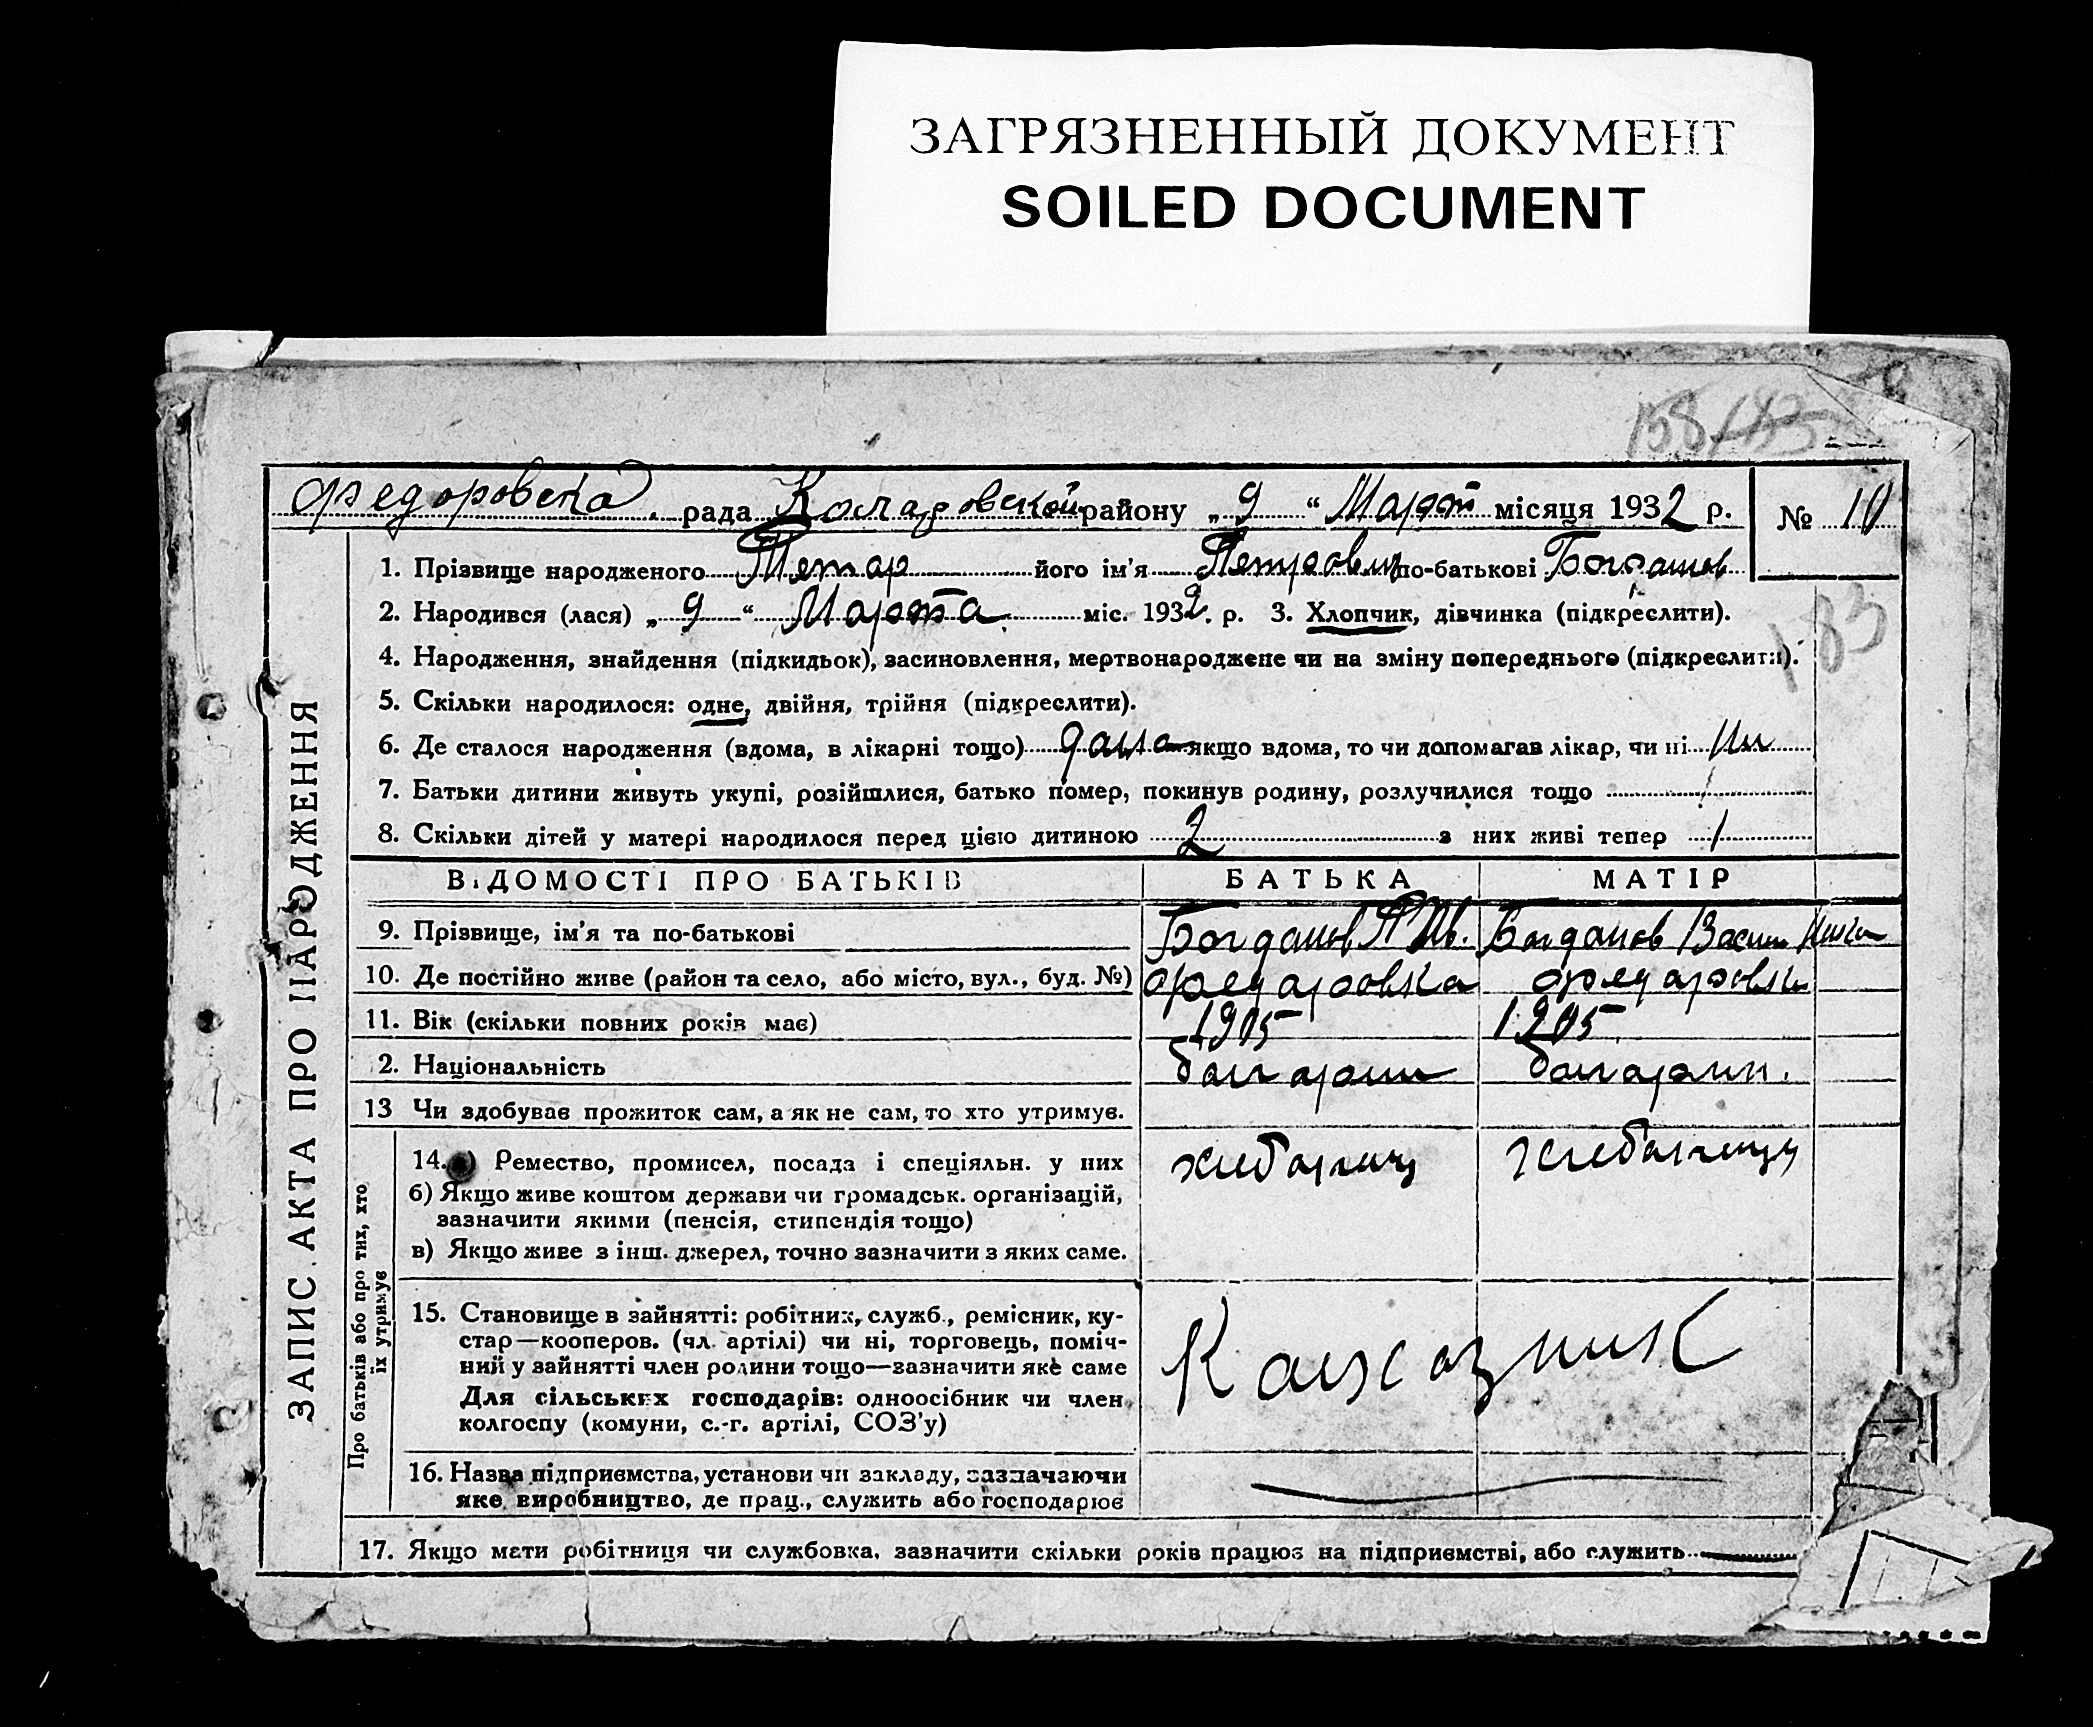 ЗАГРЯЗНЕННЫЙ ДОКУМЕНТ
SOILED DOCUMENT
158/183
Федоровска рада Коларовской району „ 9 “ Март місяця 1932 р. № 10
1. Прізвище народженого Петар його ім'я Петрович по-батькові Богданов
2. Народився (лася) „ 9 “ Марта міс. 1932. р. 3. Хлопчик, дівчинка (підкреслити).
183
4. Народження, знайдення (підкидьок), засиновлення, мертвонароджене чи на зміну попереднього (підкреслити).
5. Скільки народилося: одне, двійня, трійня (підкреслити).
6. Де сталося народження (вдома, в лікарні тощо) дома якщо вдома, то чи допомагав лікар, чи ні Ни
7. Батьки дитини живуть укупі, розійшлися, батько помер, покинув родину, розлучилися тощо
8. Скільки дітей у матері народилося перед цією дитиною 2 з них живі тепер 1
ВІДОМОСТІ ПРО БАТЬКІВ БАТЬКА МАТІР
9. Прізвище, ім'я та по-батькові Богданов П Ив. Богданов Васи
10. Де постійно живе (район та село, або місто, вул., буд. №) Федаровка Федаровка
11. Вік (скільки повних років має) 1905 1905
2. Національність болгарин болгарин.
13 Чи здобував прожиток сам, а як не сам, то хто утримує.
14. ) Ремество, промисел, посада і спеціяльн. у них хлебароец хлебаропецу
б) Якщо живе коштом держави чи громадськ. організацій,
зазначити якими (пенсія, стипендія тощо)
в) Якщо живе з інш. джерел, точно зазначити з яких саме.
15. Становище в зайнятті: робітник, служб., ремісник, ку-
стар—кооперов. (чл. артілі) чи ні, торговець, поміч-
ний у зайнятті член родини тощо—зазначити яке саме
Для сільських господарів: одноосібник чи член
колгоспу (комуни, с.-г. артілі, СОЗ'у)
Калхозник
16. Назва підприємства, установи чи закладу, зазначаючи
яке виробництво, де прац., служить або господарює
17. Якщо мати робітниця чи службовка, зазначити скільки років працює на підприємстві, або служить
ЗАПИС АКТА ПРО НАРОДЖЕННЯ
Про батьків або про тих, хто
їх утримує